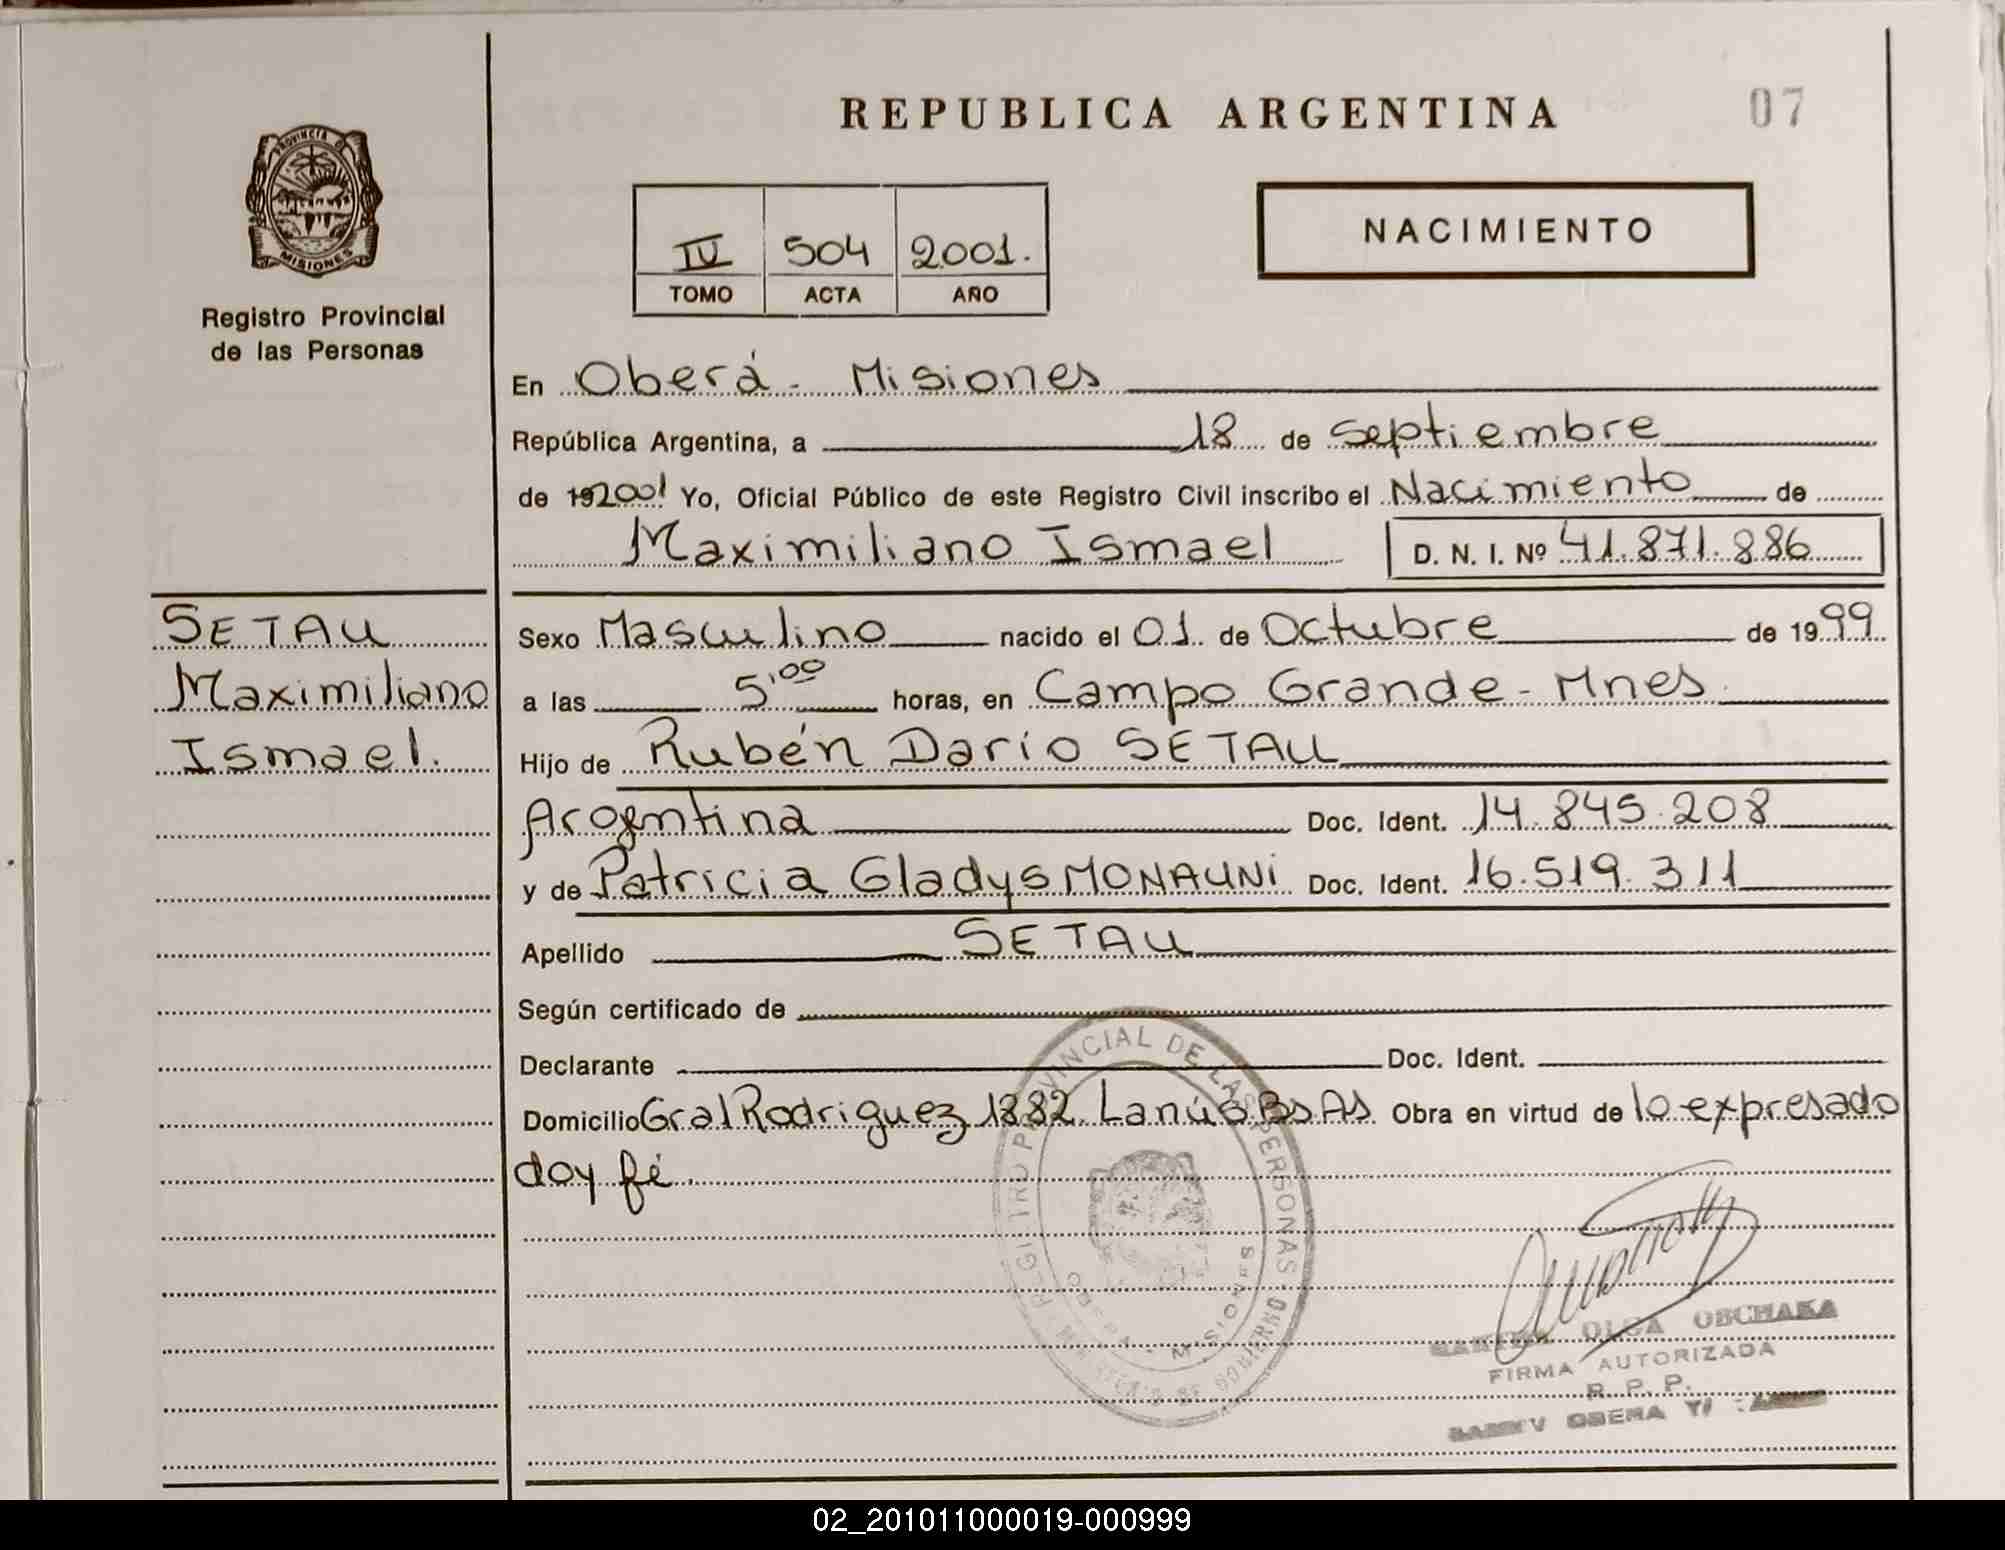 REPUBLICA ARGENTINA
07
PROVINCIA DE
MISIONES
Registro Provincial
de las Personas
IV 504 2001.
TOMO ACTA AÑO
NACIMIENTO
En Oberá - Misiones
República Argentina, a 18 de Septiembre
de 192001 Yo, Oficial Público de este Registro Civil inscribo el Nacimiento de
Maximiliano Ismael D. N. I. Nº 41.871.886
SETAU
Maximiliano
Ismael.
Sexo Masculino nacido el 01 de Octubre de 1999
a las 5,00 horas, en Campo Grande - Mnes.
Hijo de Rubén Darío SETAU
Argentina Doc. Ident. 14.845.208
y de Patricia Gladys MONAUNI Doc. Ident. 16.519.311
Apellido SETAU
Según certificado de
Declarante Doc. Ident.
Domicilio Gral Rodriguez 1882. Lanús Bs As Obra en virtud de lo expresado
doy fé.
REGISTRO PROVINCIAL DE LAS PERSONAS
OBERA - MISIONES
OLGA OBCHAKA
FIRMA AUTORIZADA
R. P. P.
OBERA
02_201011000019-000999